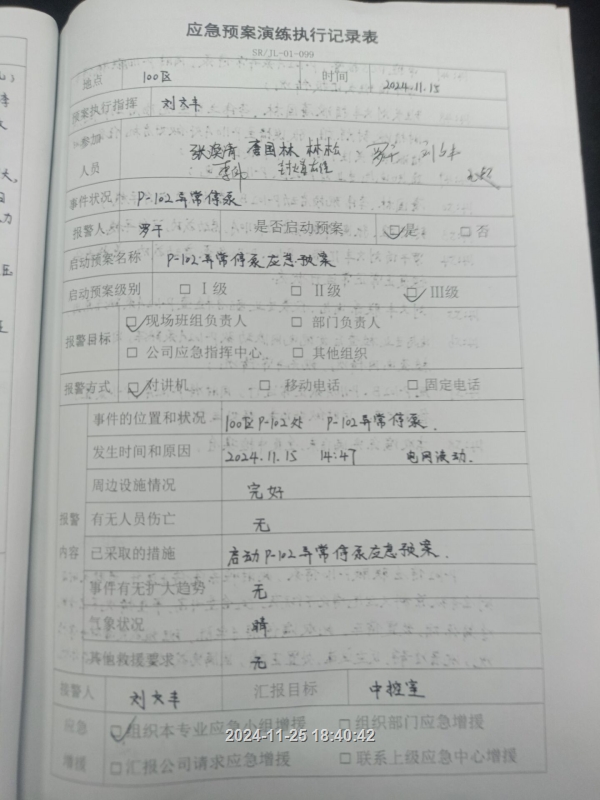 应急预案演练执行记录表
SR/JL-01-099
地点 100区 时间 2024.11.15
预案执行指挥 刘大丰
参加人员 唐国林 林松 罗干
事件状况 P-102异常停泵
报警人 罗干 是否启动预案 ☑是 □否
启动预案名称 P-102异常停泵应急预案
启动预案级别 □Ⅰ级 □Ⅱ级 ☑Ⅲ级
报警目标 ☑现场班组负责人 □部门负责人
□公司应急指挥中心 □其他组织
报警方式 ☑对讲机 □移动电话 □固定电话
报警内容
事件的位置和状况 100区P-102处 P-102异常停泵.
发生时间和原因 2024.11.15 14:47 电网波动.
周边设施情况 完好
有无人员伤亡 无
已采取的措施 启动P-102异常停泵应急预案.
事件有无扩大趋势 无
气象状况 晴
其他救援要求 无
报警人 刘大丰 汇报目标 中控室
应急增援 ☑组织本专业应急小组增援 □组织部门应急增援
□汇报公司请求应急增援 □联系上级应急中心增援
2024-11-25 18:40:42